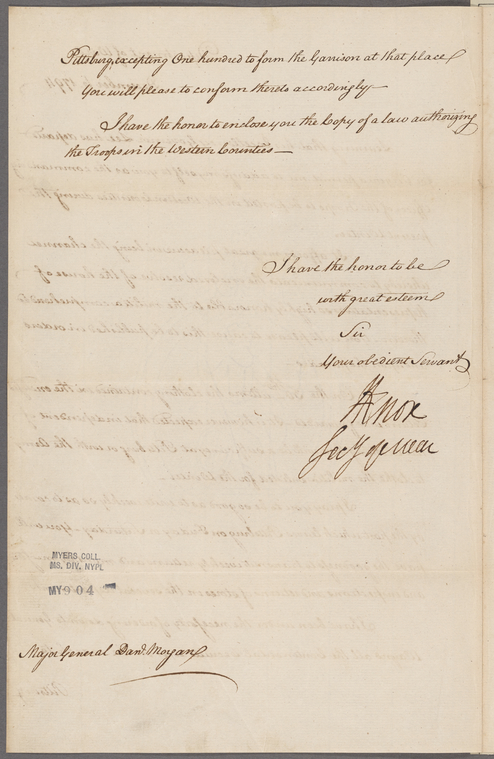 Pittsburg, excepting One hundred to form the Garrison at that place
You will please to conform thereto accordingly—
I have the honor to enclose you the Copy of a law authorizing
the Troops in the Western Counties—
I have the honor to be
with great esteem
Sir
Your obedient Servant
HKnox
Secy of War
MYERS COLL.
MS. DIV. NYPL
MY904
Major General Danl. Morgan